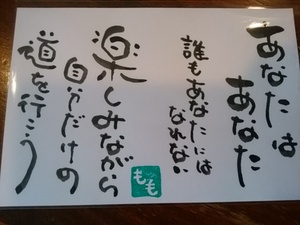 あなたは
あなた
誰もあなたには
なれない
楽しみながら
自分だけの
道を行こう
もも